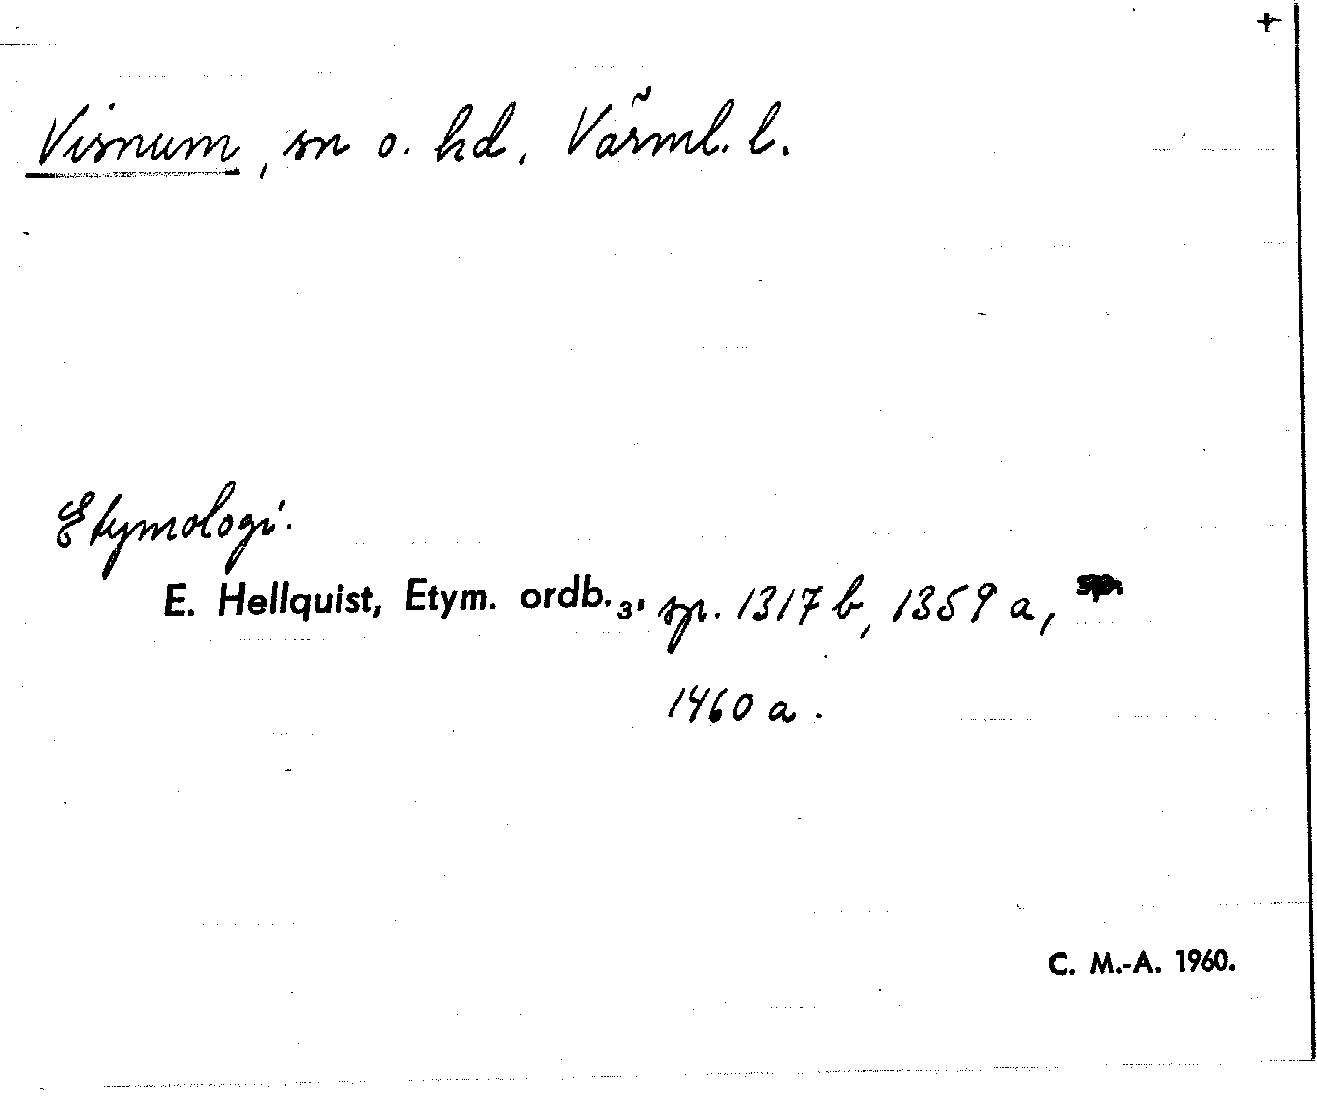 +
Visnum, sn o. hd, Värml. l.
Etymologi.
E. Hellquist, Etym. ordb.₃, sp. 1317 b, 1359 a,
1460 a.
C. M.-A. 1960.